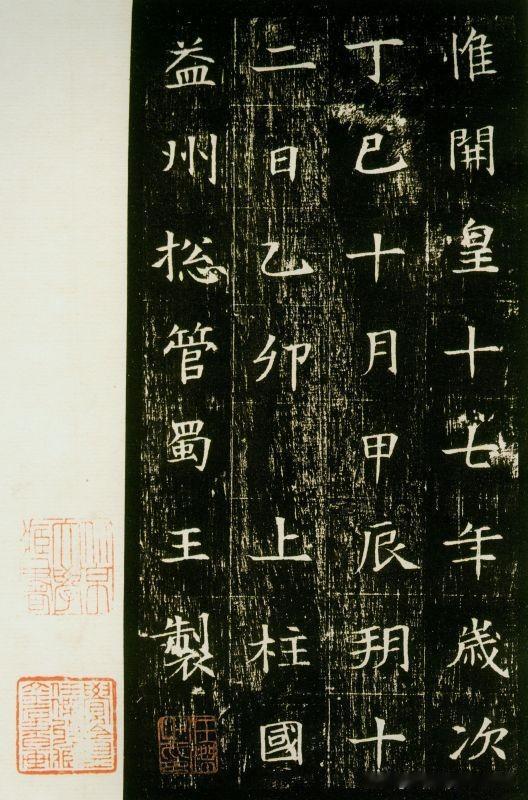 惟開皇十七年歲次
丁巳十月甲辰朔十
二日乙卯上柱國
益州揔管蜀王製